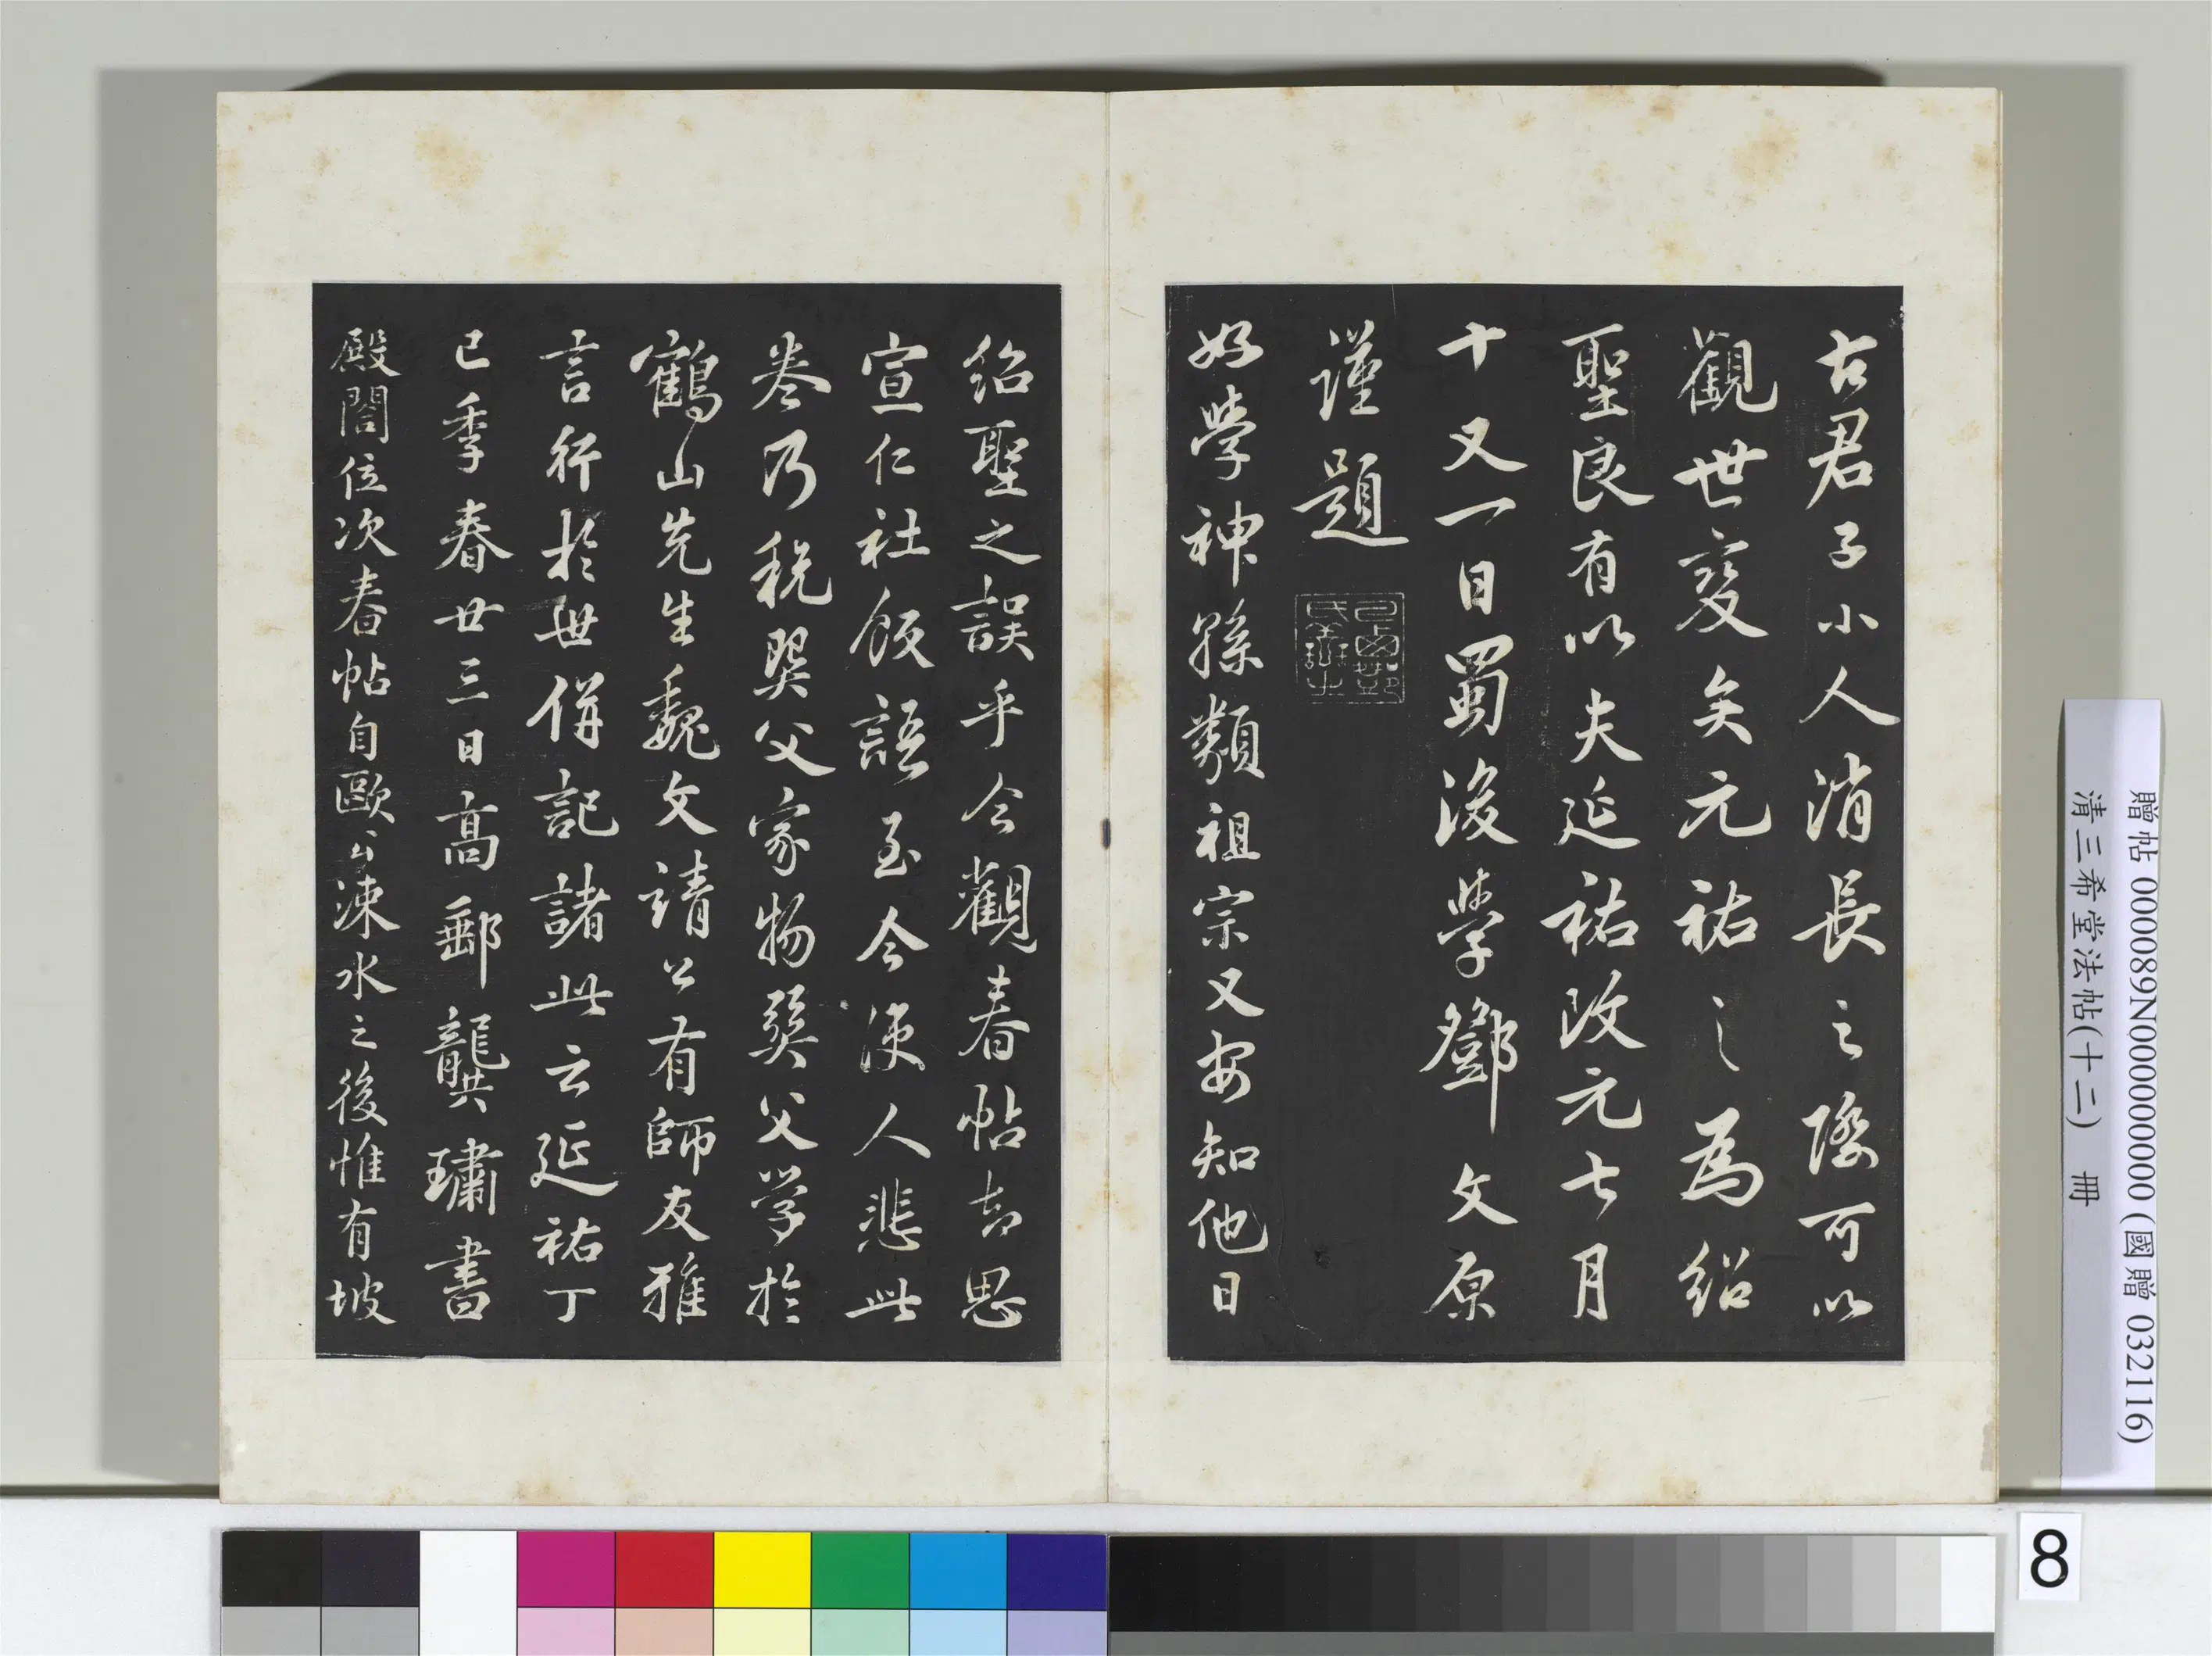 古君子小人消長之際可以
觀世變矣元祐之為紹
聖良有以夫延祐改元七月
十又一日蜀後學鄧文原
謹題
好學神孫類祖宗又安知他日
紹聖之誤乎今觀春帖却思
宣仁社飯語至今使人悲此
卷乃税巽父家物巽父学於
鶴山先生魏文靖公有師友雅
言行於世併記諸此云延祐丁
巳季春廿三日高郵龔璛書
殿閣位次春帖自歐公涑水之後惟有坡
贈帖 000089N000000000 (國贈 032116)
清三希堂法帖(十二) 冊
8